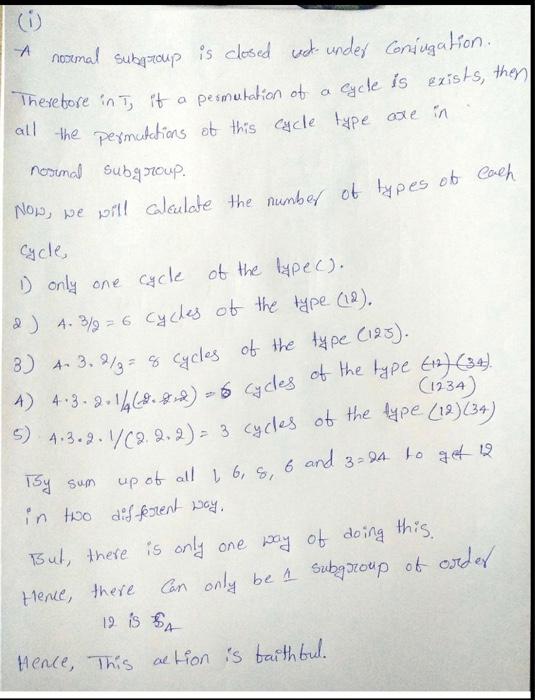 (i)
A normal subgroup is closed under conjugation.
Therefore in T, if a permutation of a cycle is exists, then
all the permutations of this cycle type are in
normal subgroup.
Now, we will calculate the number of types of each
cycle,
1) only one cycle of the type ().
2) 4.3/2 = 6 cycles of the type (12).
3) 4.3.2/3 = 8 cycles of the type (123).
4) 4.3.2.1/4 = 6 cycles of the type (1234)
5) 4.3.2.1/(2.2.2) = 3 cycles of the type (12)(34)
By sum up of all 1, 6, 8, 6 and 3 = 24 to get 12
in two different way.
But, there is only one way of doing this.
Hence, there can only be 1 subgroup of order
12 is S4
Hence, This action is faithful.